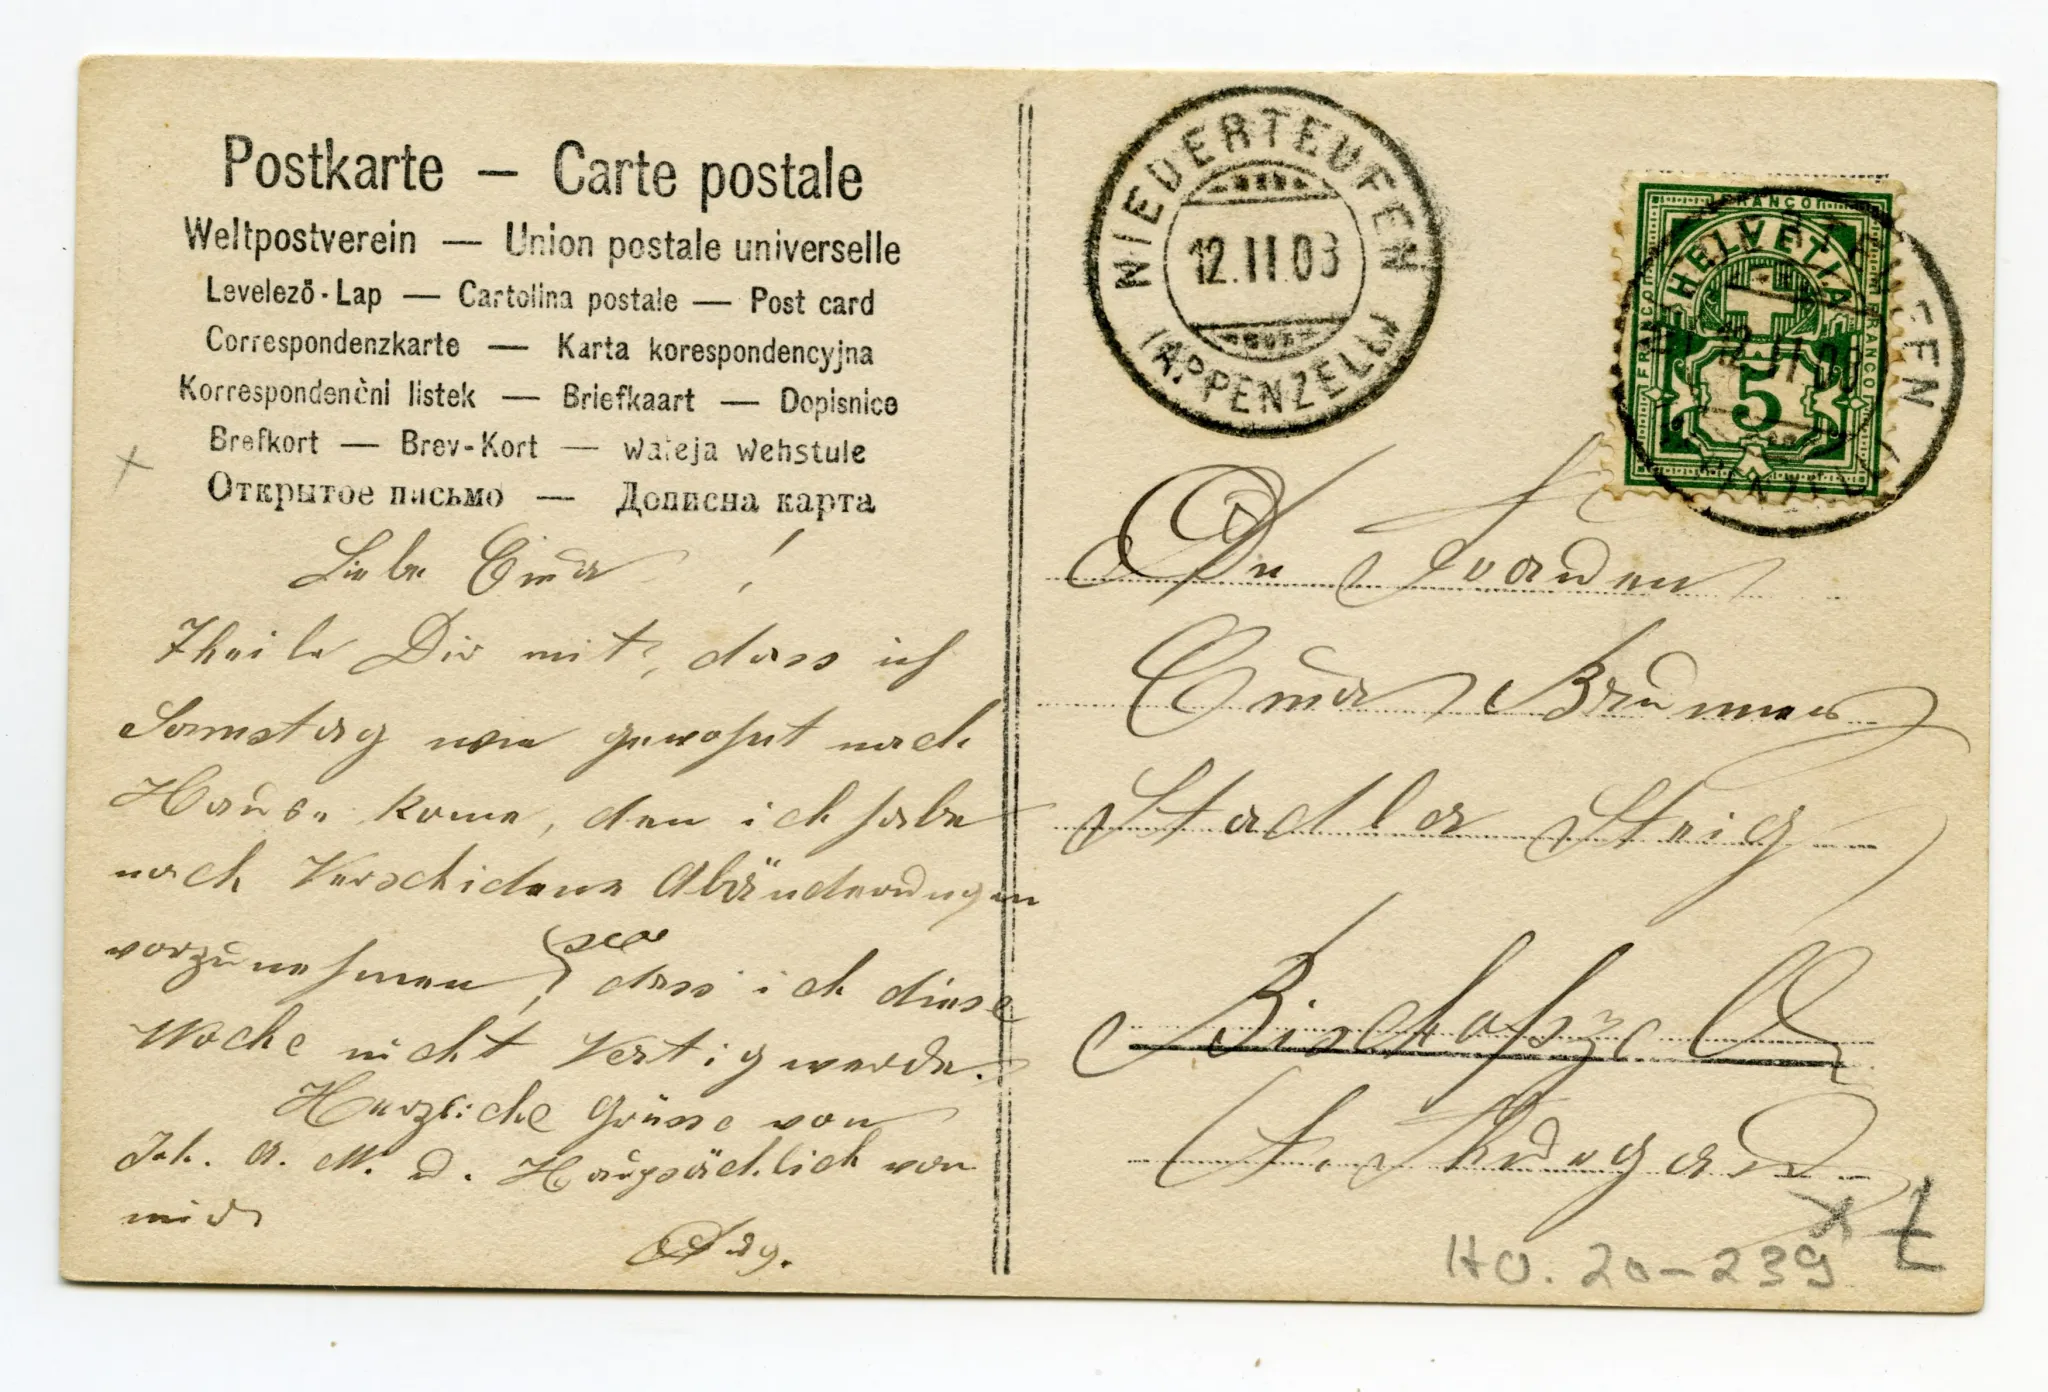 Postkarte — Carte postale
Weltpostverein — Union postale universelle
Levelező-Lap — Cartolina postale — Post card
Correspondenzkarte — Karta korespondencyjna
Korrespondenčni listek — Briefkaart — Dopisnice
Brefkort — Brev-Kort — Wateja Wehstule
Открытое письмо — Дописна карта
Liebe Ema !
Theile Dir mit, dass ich
Samstag wie gewohnt nach
Hause kome, den ich habe
noch Verschidene Abänderungen
vorzunehmen, so dass ich diese
Woche nicht Vertig werde.
Herzliche Grüsse von
Joh. A. M. u. Haupsächlich von
mir
NIEDERTEUFEN
12.II.08
(APPENZELL)
FRANCO
HELVETIA
5
12.II.08
An Frauen
Ema Brunner
Stadler Steig
Bischofszell
Ct. Thurgau
HO. 20-239